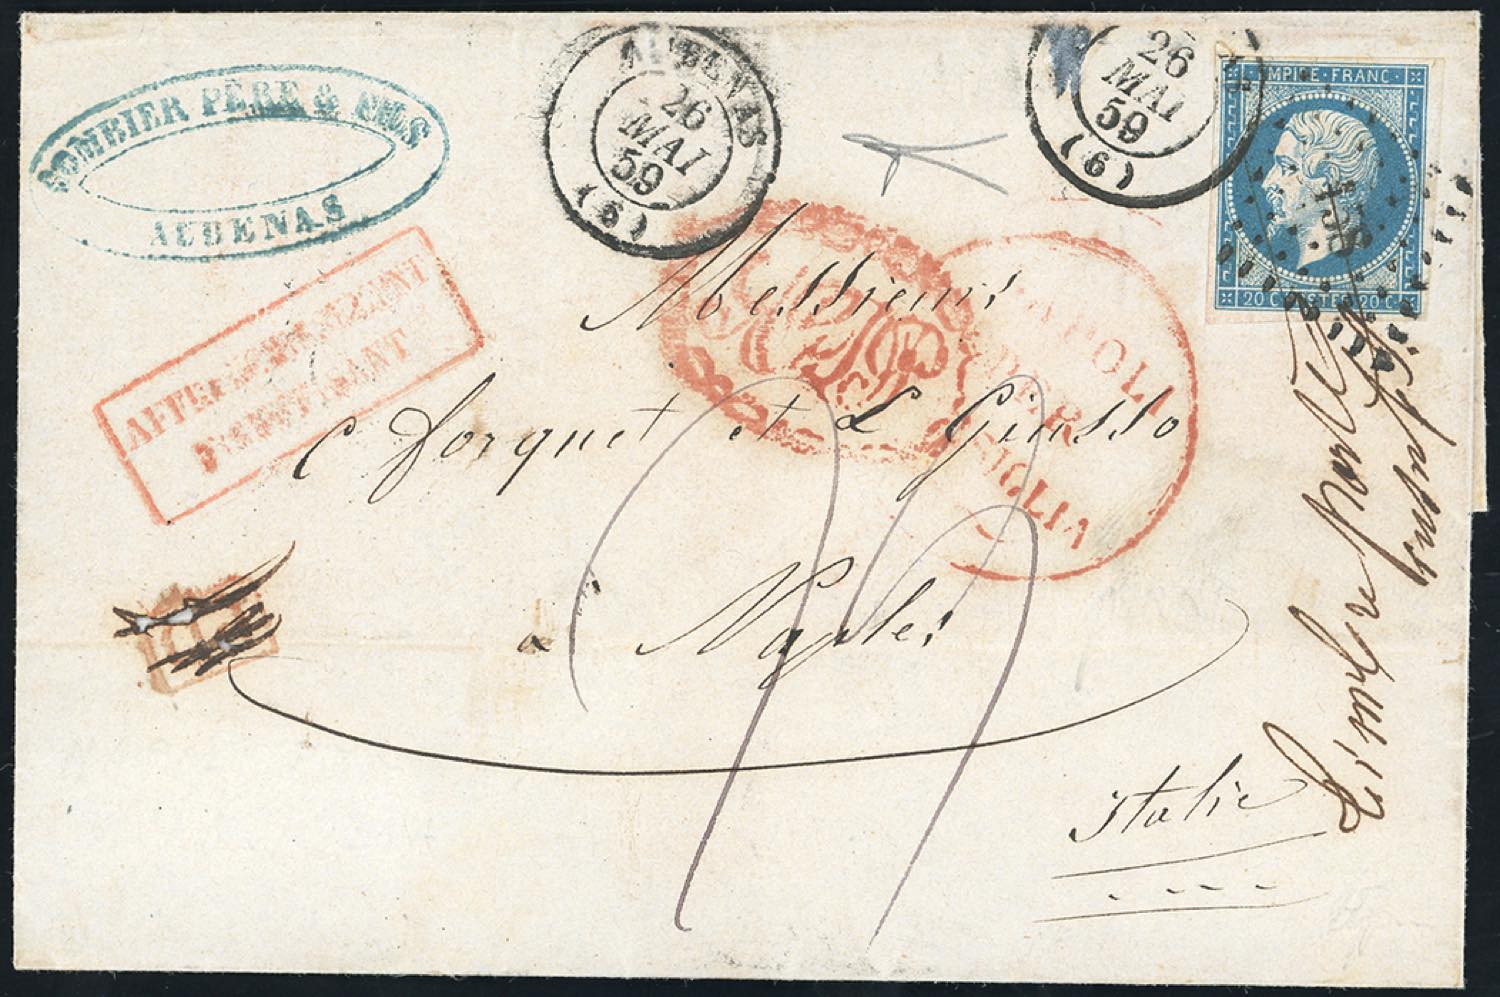 POMBIER PÈRE & FILS
AUBENAS
AUBENAS
26
MAI
59
(6)
26
MAI
59
(6)
EMPIRE · FRANC ·
20 C. POSTES 20 C.
AFFRANCHISSEMENT
INSUFFISANT
NAPOLI
PER
SIGLIA
Messieurs
C Forquet et L Giusso
à Naples
Italie